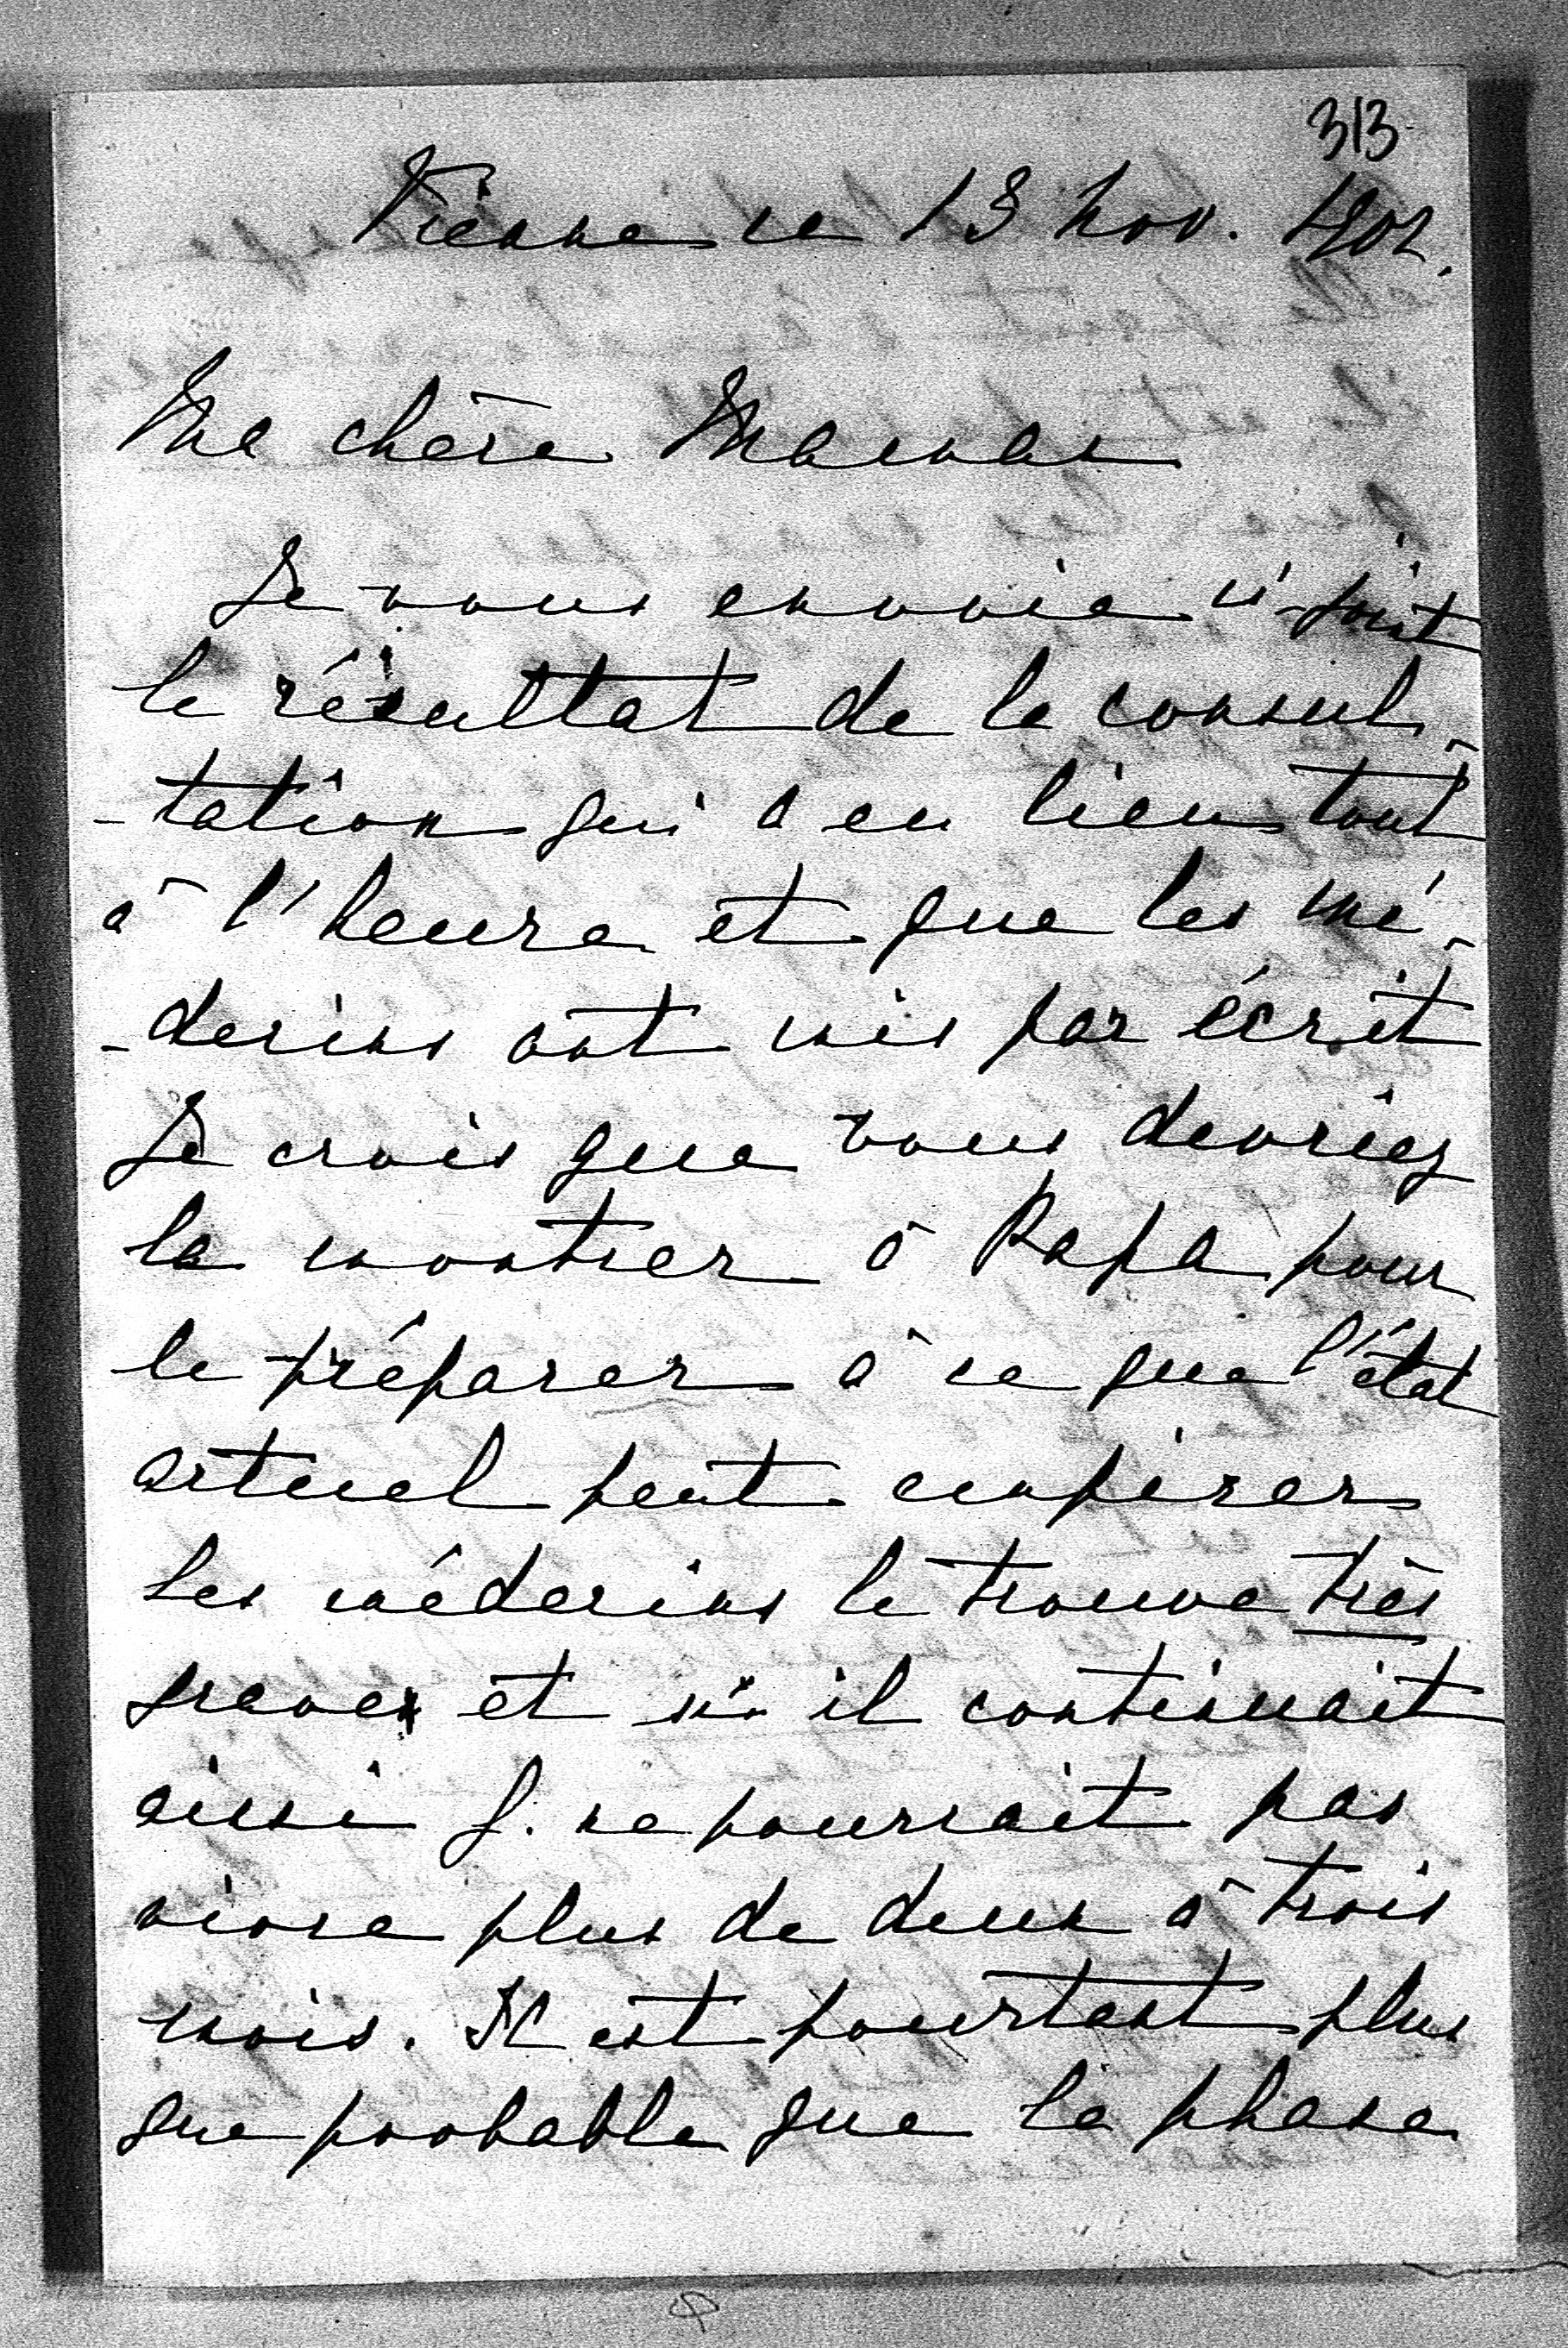 313
Vienne ce 13 nov. 1902.
Ma chère Maman
Je vous envoie ci-joint
le résultat de la consul-
-tation qui a eu lieu tout
à l'heure et que les mé-
-decins ont mis par écrit
Je crois que vous devriez
la montrer à Papa pour
le préparer à ce que l'état
actuel peut empirer
Les médecins le trouve très
grave et si il continuait
ainsi J. ne pourrait pas
vivre plus de deux à trois
mois. Il est pourtant plus
que probable que la phase